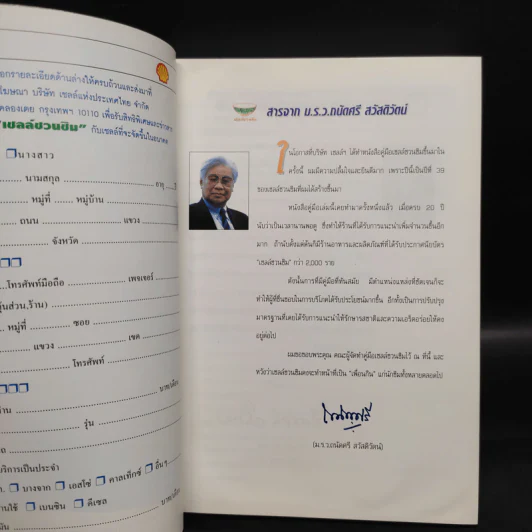 อกรายละเอียดด้านล่างให้ครบถ้วนและส่งมาที่
โฆษณา บริษัท เชลล์แห่งประเทศไทย จำกัด
คลองเตย กรุงเทพฯ 10110 เพื่อรับสิทธิพิเศษและข่าวสาร
"เชลล์ชวนชิม" กับเชลล์ที่จะจัดขึ้นในอนาคต
นางสาว
นามสกุล อายุ
หมู่ที่ หมู่บ้าน
ถนน แขวง
จังหวัด
โทรศัพท์มือถือ เพจเจอร์
หุ้นส่วน,ร้าน)
หมู่ที่ ซอย
แขวง เขต
โทรศัพท์
รุ่น
บริการเป็นประจำ
บางจาก เอสโซ่ คาลเท็กซ์ อื่นๆ
เบนซิน ดีเซล
สารจาก ม.ร.ว.ถนัดศรี สวัสดิวัตน์
ในโอกาสที่บริษัท เชลล์ฯ ได้ทำหนังสือคู่มือเชลล์ชวนชิมขึ้นมาใน
ครั้งนี้ ผมมีความปลื้มใจและยินดีมาก เพราะปีนี้เป็นปีที่ 39
ของเชลล์ชวนชิมที่ผมได้สร้างขึ้นมา
หนังสือคู่มือเล่มนี้เคยทำมาครั้งหนึ่งแล้ว เมื่อครบ 20 ปี
นับว่าเป็นเวลานานพอดู ซึ่งทำให้ร้านที่ได้รับการแนะนำเพิ่มจำนวนขึ้นอีก
มาก ถ้านับตั้งแต่ต้นก็มีร้านอาหารและผลิตภัณฑ์ที่ได้รับประกาศนียบัตร
"เชลล์ชวนชิม" กว่า 2,000 ราย
ดังนั้นการที่มีคู่มือที่ทันสมัย มีตำแหน่งแหล่งที่ชัดเจนก็จะ
ทำให้ผู้ที่ชื่นชอบในการบริโภคได้รับประโยชน์มากขึ้น อีกทั้งเป็นการปรับปรุง
มาตรฐานที่เคยได้รับการแนะนำให้รักษารสชาติและความเอร็ดอร่อยให้คง
อยู่ต่อไป
ผมขอขอบพระคุณ คณะผู้จัดทำคู่มือเชลล์ชวนชิมไว้ ณ ที่นี้ และ
หวังว่าเชลล์ชวนชิมคงจะทำหน้าที่เป็น "เพื่อนกิน" แก่นักชิมทั้งหลายตลอดไป
(ม.ร.ว.ถนัดศรี สวัสดิวัตน์)